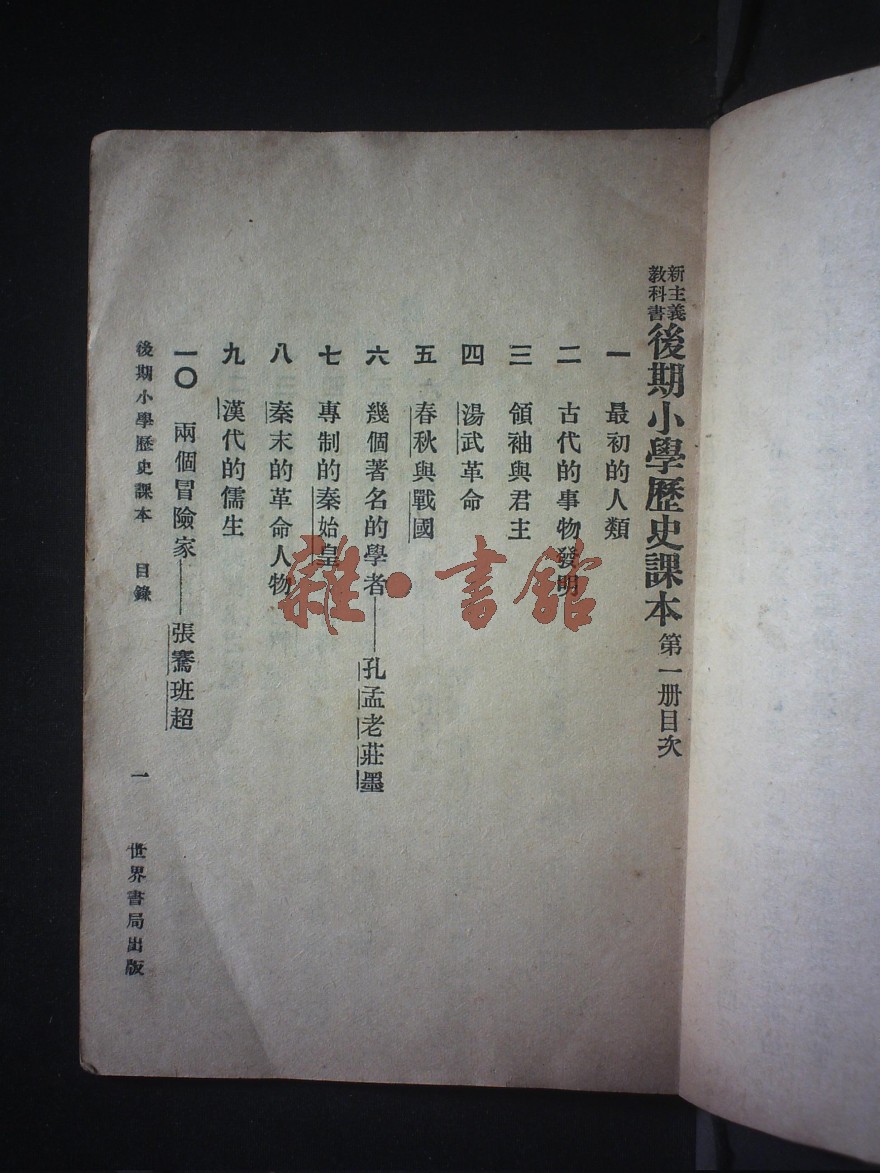 新主義
教科書
後期小學歷史課本 第一册目次
一 最初的人類
二 古代的事物發明
三 領袖與君主
四 湯武革命
五 春秋與戰國
六 幾個著名的學者——孔孟老莊墨
七 專制的秦始皇
八 秦末的革命人物
九 漢代的儒生
一〇 兩個冒險家——張騫班超
後期小學歷史課本 目錄
一
世界書局出版
雜·書館